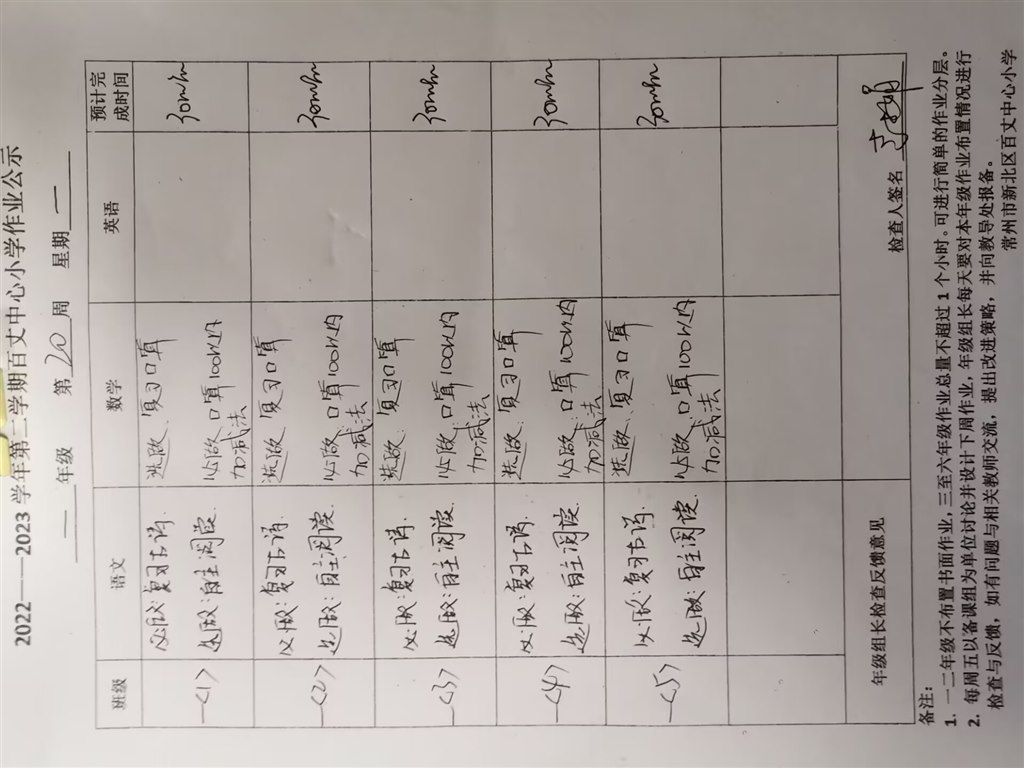 2022——2023 学年第二学期百丈中心小学作业公示
一 年级 第 20 周 星期 一
班级 语文 数学 英语 预计完成时间
一<1> 必做:复习古诗. 选做、复习口算 30min
选做:自主阅读. 必做、口算100以内加减法
一<2> 必做:复习古诗. 选做、复习口算 30min
选做:自主阅读. 必做、口算100以内加减法
一<3> 必做:复习古诗. 选做、复习口算 30min
选做:自主阅读. 必做、口算100以内加减法
一<4> 必做:复习古诗. 选做、复习口算 30min
选做:自主阅读. 必做、口算100以内加减法
一<5> 必做:复习古诗. 选做、复习口算 30min
选做:自主阅读. 必做、口算100以内加减法
年级组长检查反馈意见
检查人签名
备注:
1. 一二年级不布置书面作业,三至六年级作业总量不超过 1 个小时。可进行简单的作业分层。
2. 每周五以备课组为单位讨论并设计下周作业,年级组长每天要对本年级作业布置情况进行
检查与反馈,如有问题与相关教师交流,提出改进策略,并向教导处报备。
常州市新北区百丈中心小学